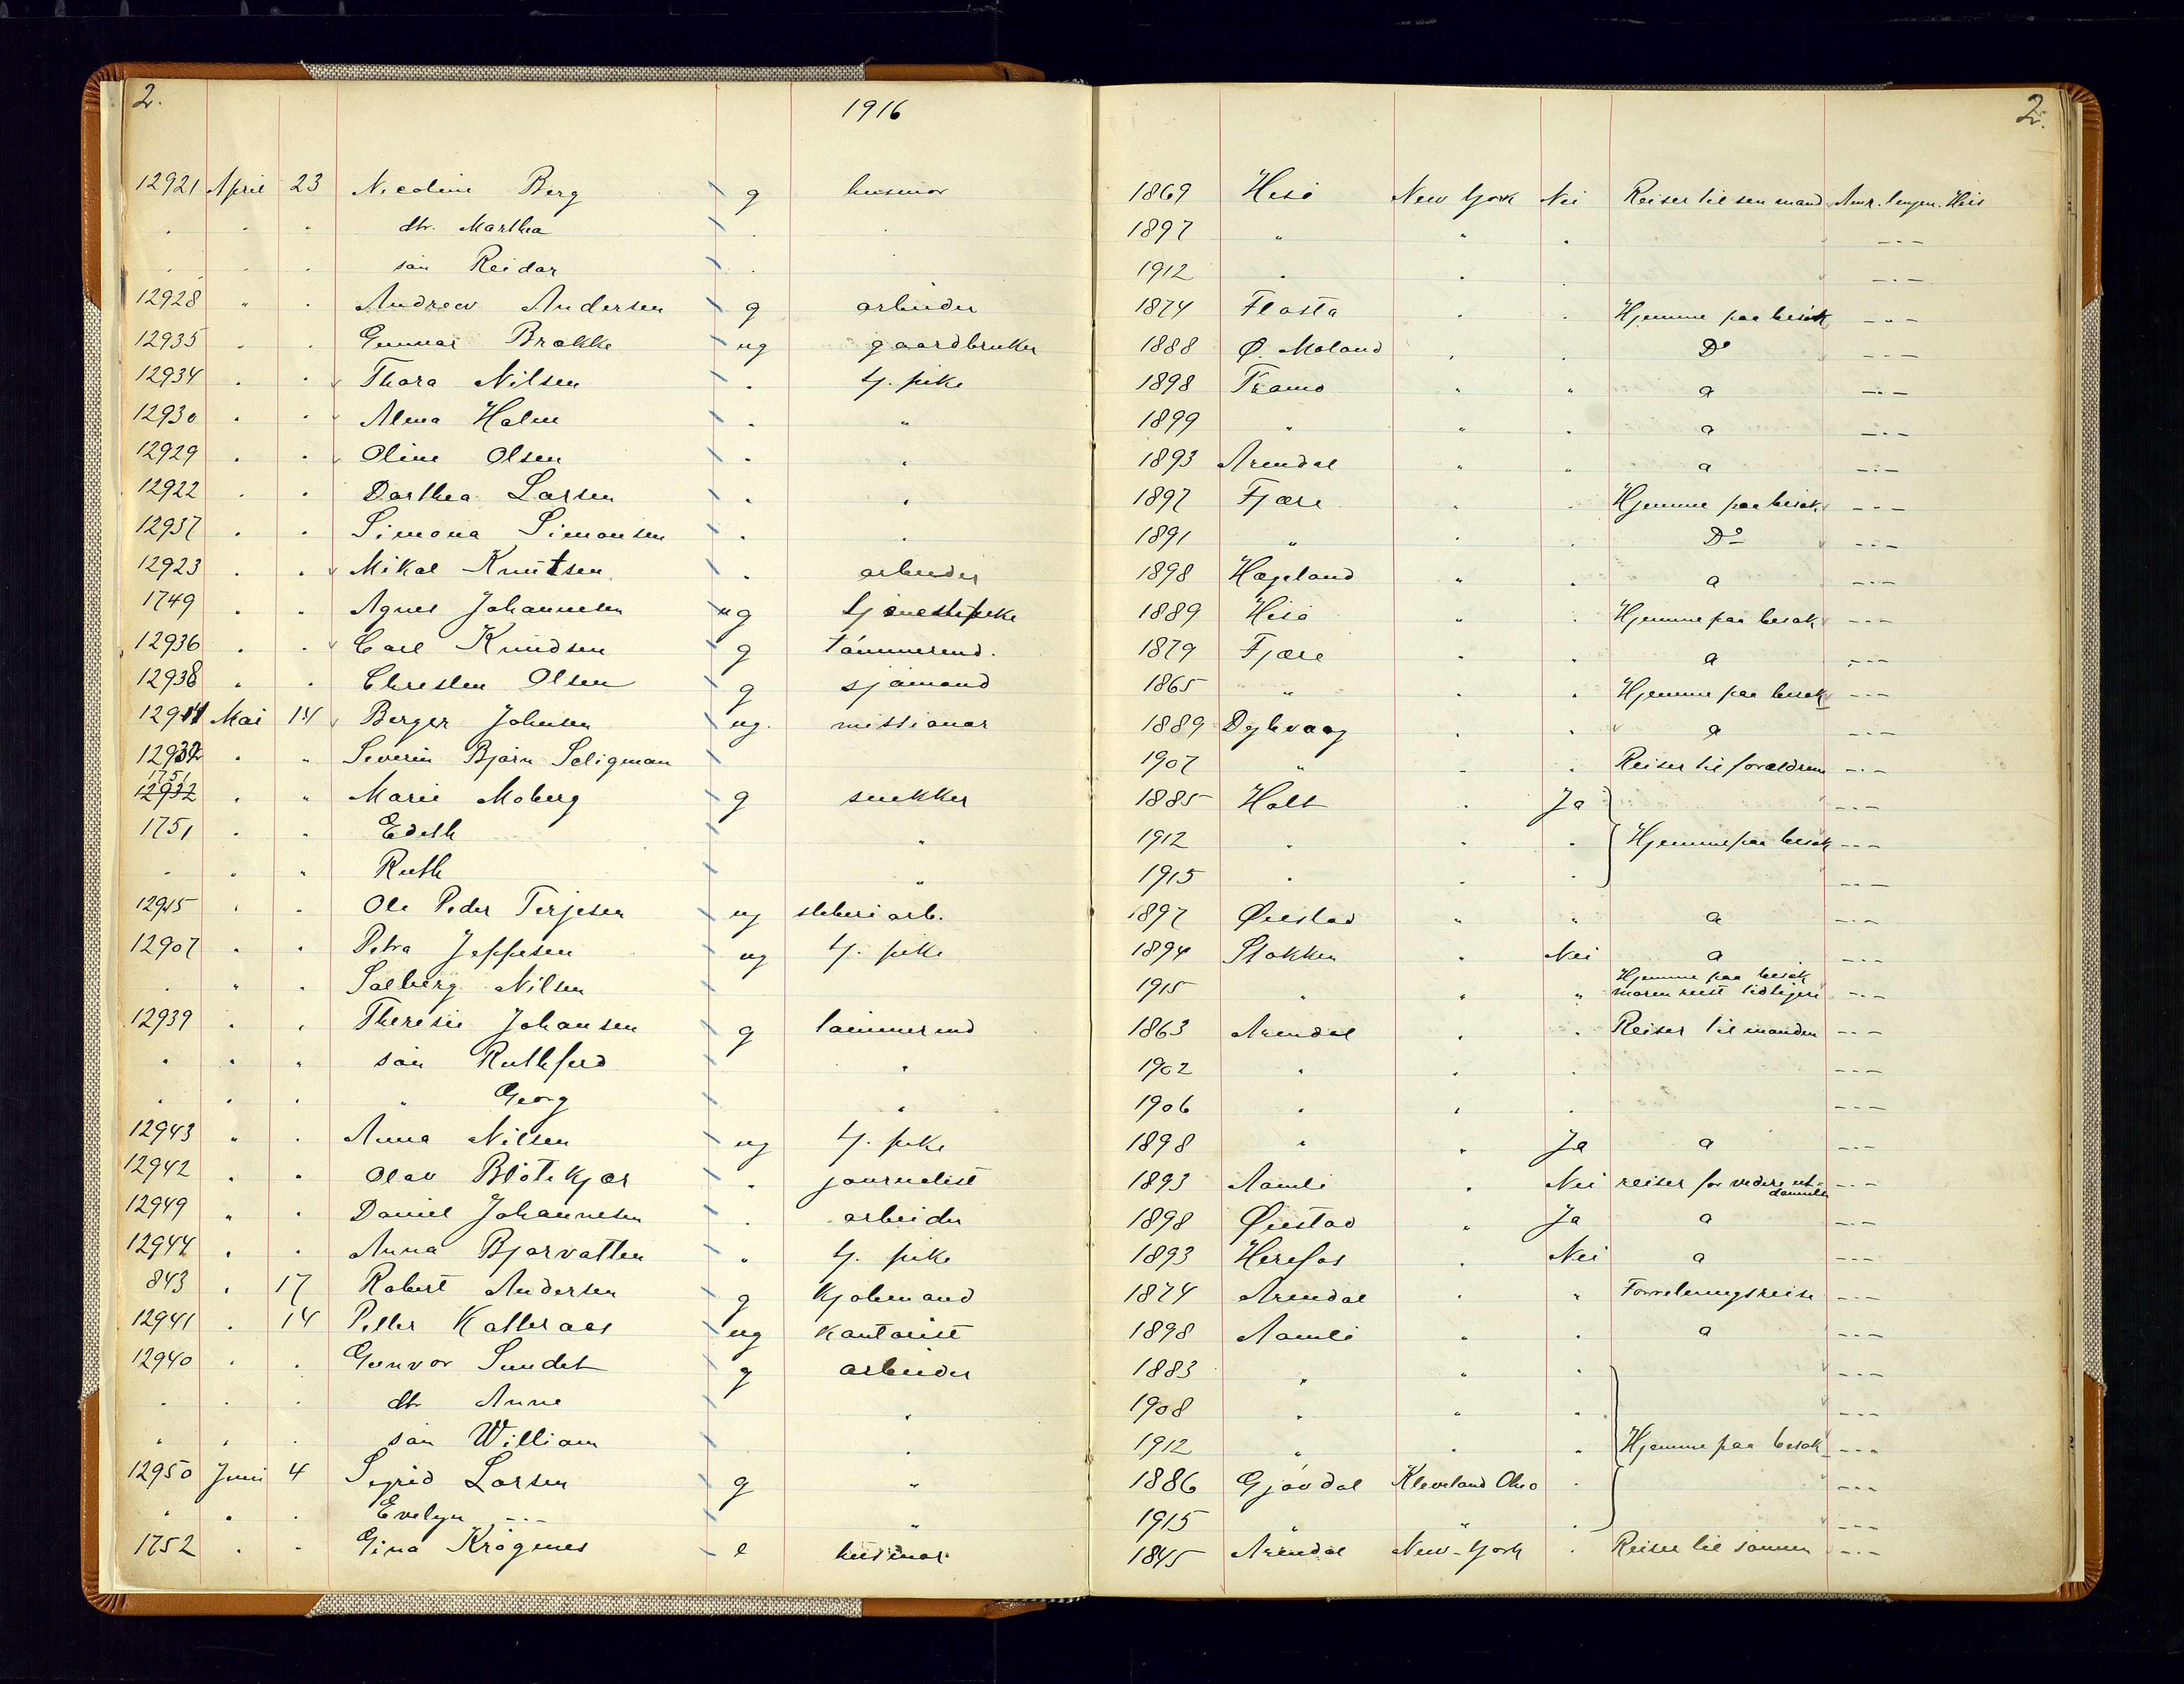 2. 1916 2.
12921 April 23 Nicoline Berg g husmor 1869 Hisö New York Nei Reiser til sin mand Amr. linjen. Hisö
" " " dtr. Martha " " 1897 " " " -"-
" " " sön Reidar " 1912 " " " -"-
12928 " " Andrew Andersen g arbeider 1874 Flosta " " Hjemme paa besök -"-
12935 " " Gunnar Brække ug gaardbruker 1888 Ø. Moland " " Do -"-
12934 " " Thora Nilsen " tj. pike 1898 Tromö " " a -"-
12930 " " Alma Holm " " 1899 " " " a -"-
12929 " " Oline Olsen " " 1893 Arendal " " a -"-
12922 " " Dorthea Larsen " " 1897 Fjære " " Hjemme paa besök -"-
12937 " " Simona Simonsen " " 1891 " " " Do -"-
12923 " " Mikal Knutsen " arbeider 1898 Hægeland " " a -"-
1749 " " Agnes Johannesen ug tjenestepike 1889 Hisö " " Hjemme paa besök -"-
12936 " " Carl Knudsen g tömmermd. 1879 Fjære " " a -"-
12938 " " Christen Olsen g sjömand 1865 " " " Hjemme paa besök -"-
Mai 14 Berger Johnsen ug. missionær 1889 Dybvaag " " a -"-
" " Severin Bjørn Seligman 1907 " " " Reiser til forældrene -"-
1751
12932 " " Marie Moberg g snekker 1885 Holt " Ja -"-
1751 " " Edith " 1912 " " " Hjemme paa besök -"-
" " " Ruth " 1915 " " " -"-
12945 " " Ole Peder Terjesen ug arb. 1897 Øiestad " " a -"-
12907 " " Petra Jeppesen ug tj. pike 1894 Stokken " Nei a -"-
" " " Solberg Nilsen 1915 " " " Hjemme paa besök
moren reist tidligere -"-
12939 " " Therese Johansen g tömmermd 1863 Arendal " " Reiser til manden -"-
" " " sön Ruthferd " 1902 " " " -"-
" " " " Georg " 1906 " " " -"-
12943 " " Anna Nilsen ug tj. pike 1898 " " Ja a -"-
12942 " " Olav Blötekjær " journalist 1893 Aamli " Nei reiser for videre ut-
dannelse -"-
12949 " " Daniel Johannesen " arbeider 1898 Øiestad " Ja a -"-
12944 " " Anna Bjorvatten " tj. pike 1893 Herefos " Nei a -"-
843 " 17 Robert Andersen g Kjöbmand 1874 Arendal " " Forretningsreise -"-
12941 " 14 Petter Katteraas ug Kontorist 1898 Aamli " " a -"-
12940 " " Gunvor Sundet g arbeider 1883 " " " -"-
" " " dtr Anne " 1908 " " " -"-
" " " sön William " 1912 " " " Hjemme paa besök -"-
12950 Juni 4 Sigrid Larsen g " 1886 Gjövdal Kleveland Ohio " -"-
" " " Evelyn -"- " 1915 " " " -"-
1752 " " Gina Krögenes e husmor 1845 Arendal New-York " Reiser til sönnen -"-